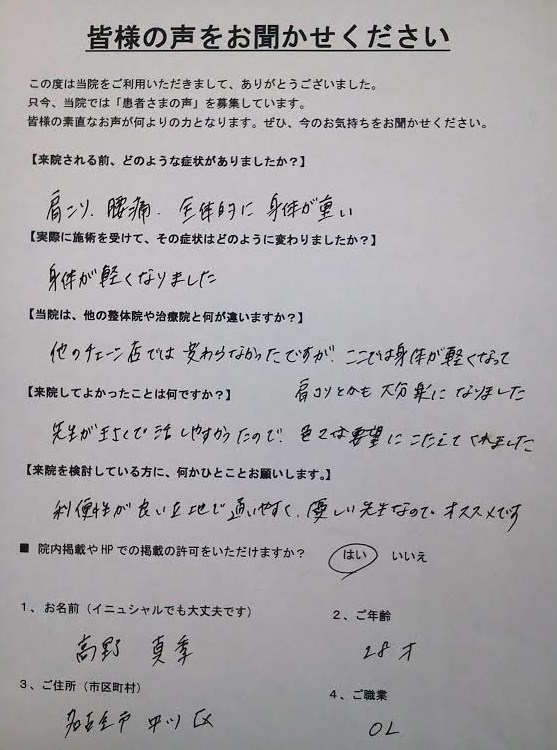 皆様の声をお聞かせください
この度は当院をご利用いただきまして、ありがとうございました。
只今、当院では「患者さまの声」を募集しています。
皆様の素直なお声が何よりの力となります。ぜひ、今のお気持ちをお聞かせください。
【来院される前、どのような症状がありましたか？】
肩こり、腰痛、全体的に身体が重い
【実際に施術を受けて、その症状はどのように変わりましたか？】
身体が軽くなりました
【当院は、他の整体院や治療院と何が違いますか？】
他のチェーン店では変わらなかったですが、ここでは身体が軽くなって
肩コリとかも大分楽になりました
【来院してよかったことは何ですか？】
先生が気さくで話しやすかったので、色々な要望にこたえてくれました
【来院を検討している方に、何かひとことお願いします。】
利便性が良い立地で通いやすく、優しい先生なので、オススメです
■ 院内掲載やHPでの掲載の許可をいただけますか？ はい いいえ
1、お名前（イニュシャルでも大丈夫です） 2、ご年齢
高野 真季 28才
3、ご住所（市区町村） 4、ご職業
名古屋市 中川区 OL